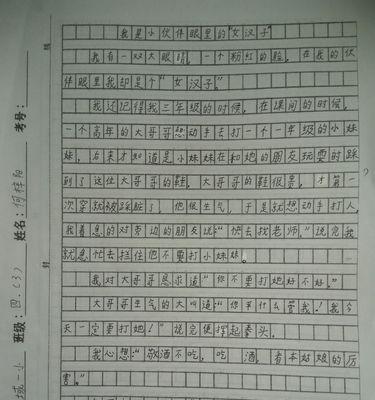 我是小伙伴眼里的“女汉子”
我有一双大眼睛，一个粉红的脸，在我的伙
伴眼里我却是个“女汉子。”
我还记得我三年级的时候，在课间的时候，
一个高年的大哥哥想动手去打一个一年级的小妹
妹，后来才知道是小妹妹在和她的朋友玩耍时踩
到了这位大哥哥的鞋，大哥哥的鞋很贵，才第一
次穿就被踩脏了，他很生气，于是就想动手打人，
我着急的对旁边的朋友说：“快去找老师。”说完我
就急忙去拦住他不要打小妹妹。
我对大哥哥恳求道“你不要打她好不好。”
大哥哥生气的大叫道：“你凭什么管我！我今
天一定要打她！”说完便挥起拳头。
我心想：“敬酒不吃，吃酒，看本姑娘的厉
害。”
考号：
姓名：何梓阳
班级：四.（3）
域一小
封